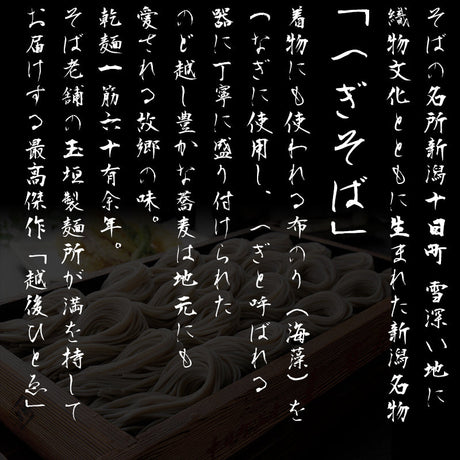 そばの名所新潟十日町 雪深い地に
織物文化とともに生まれた新潟名物
「へぎそば」
着物にも使われる布のり（海藻）を
つなぎに使用し、へぎと呼ばれる
器に丁寧に盛り付けられた
のど越し豊かな蕎麦は地元にも
愛される故郷の味。
乾麺一筋六十有余年。
そば老舗の玉垣製麺所が満を持して
お届けする最高傑作「越後ひとゑ」